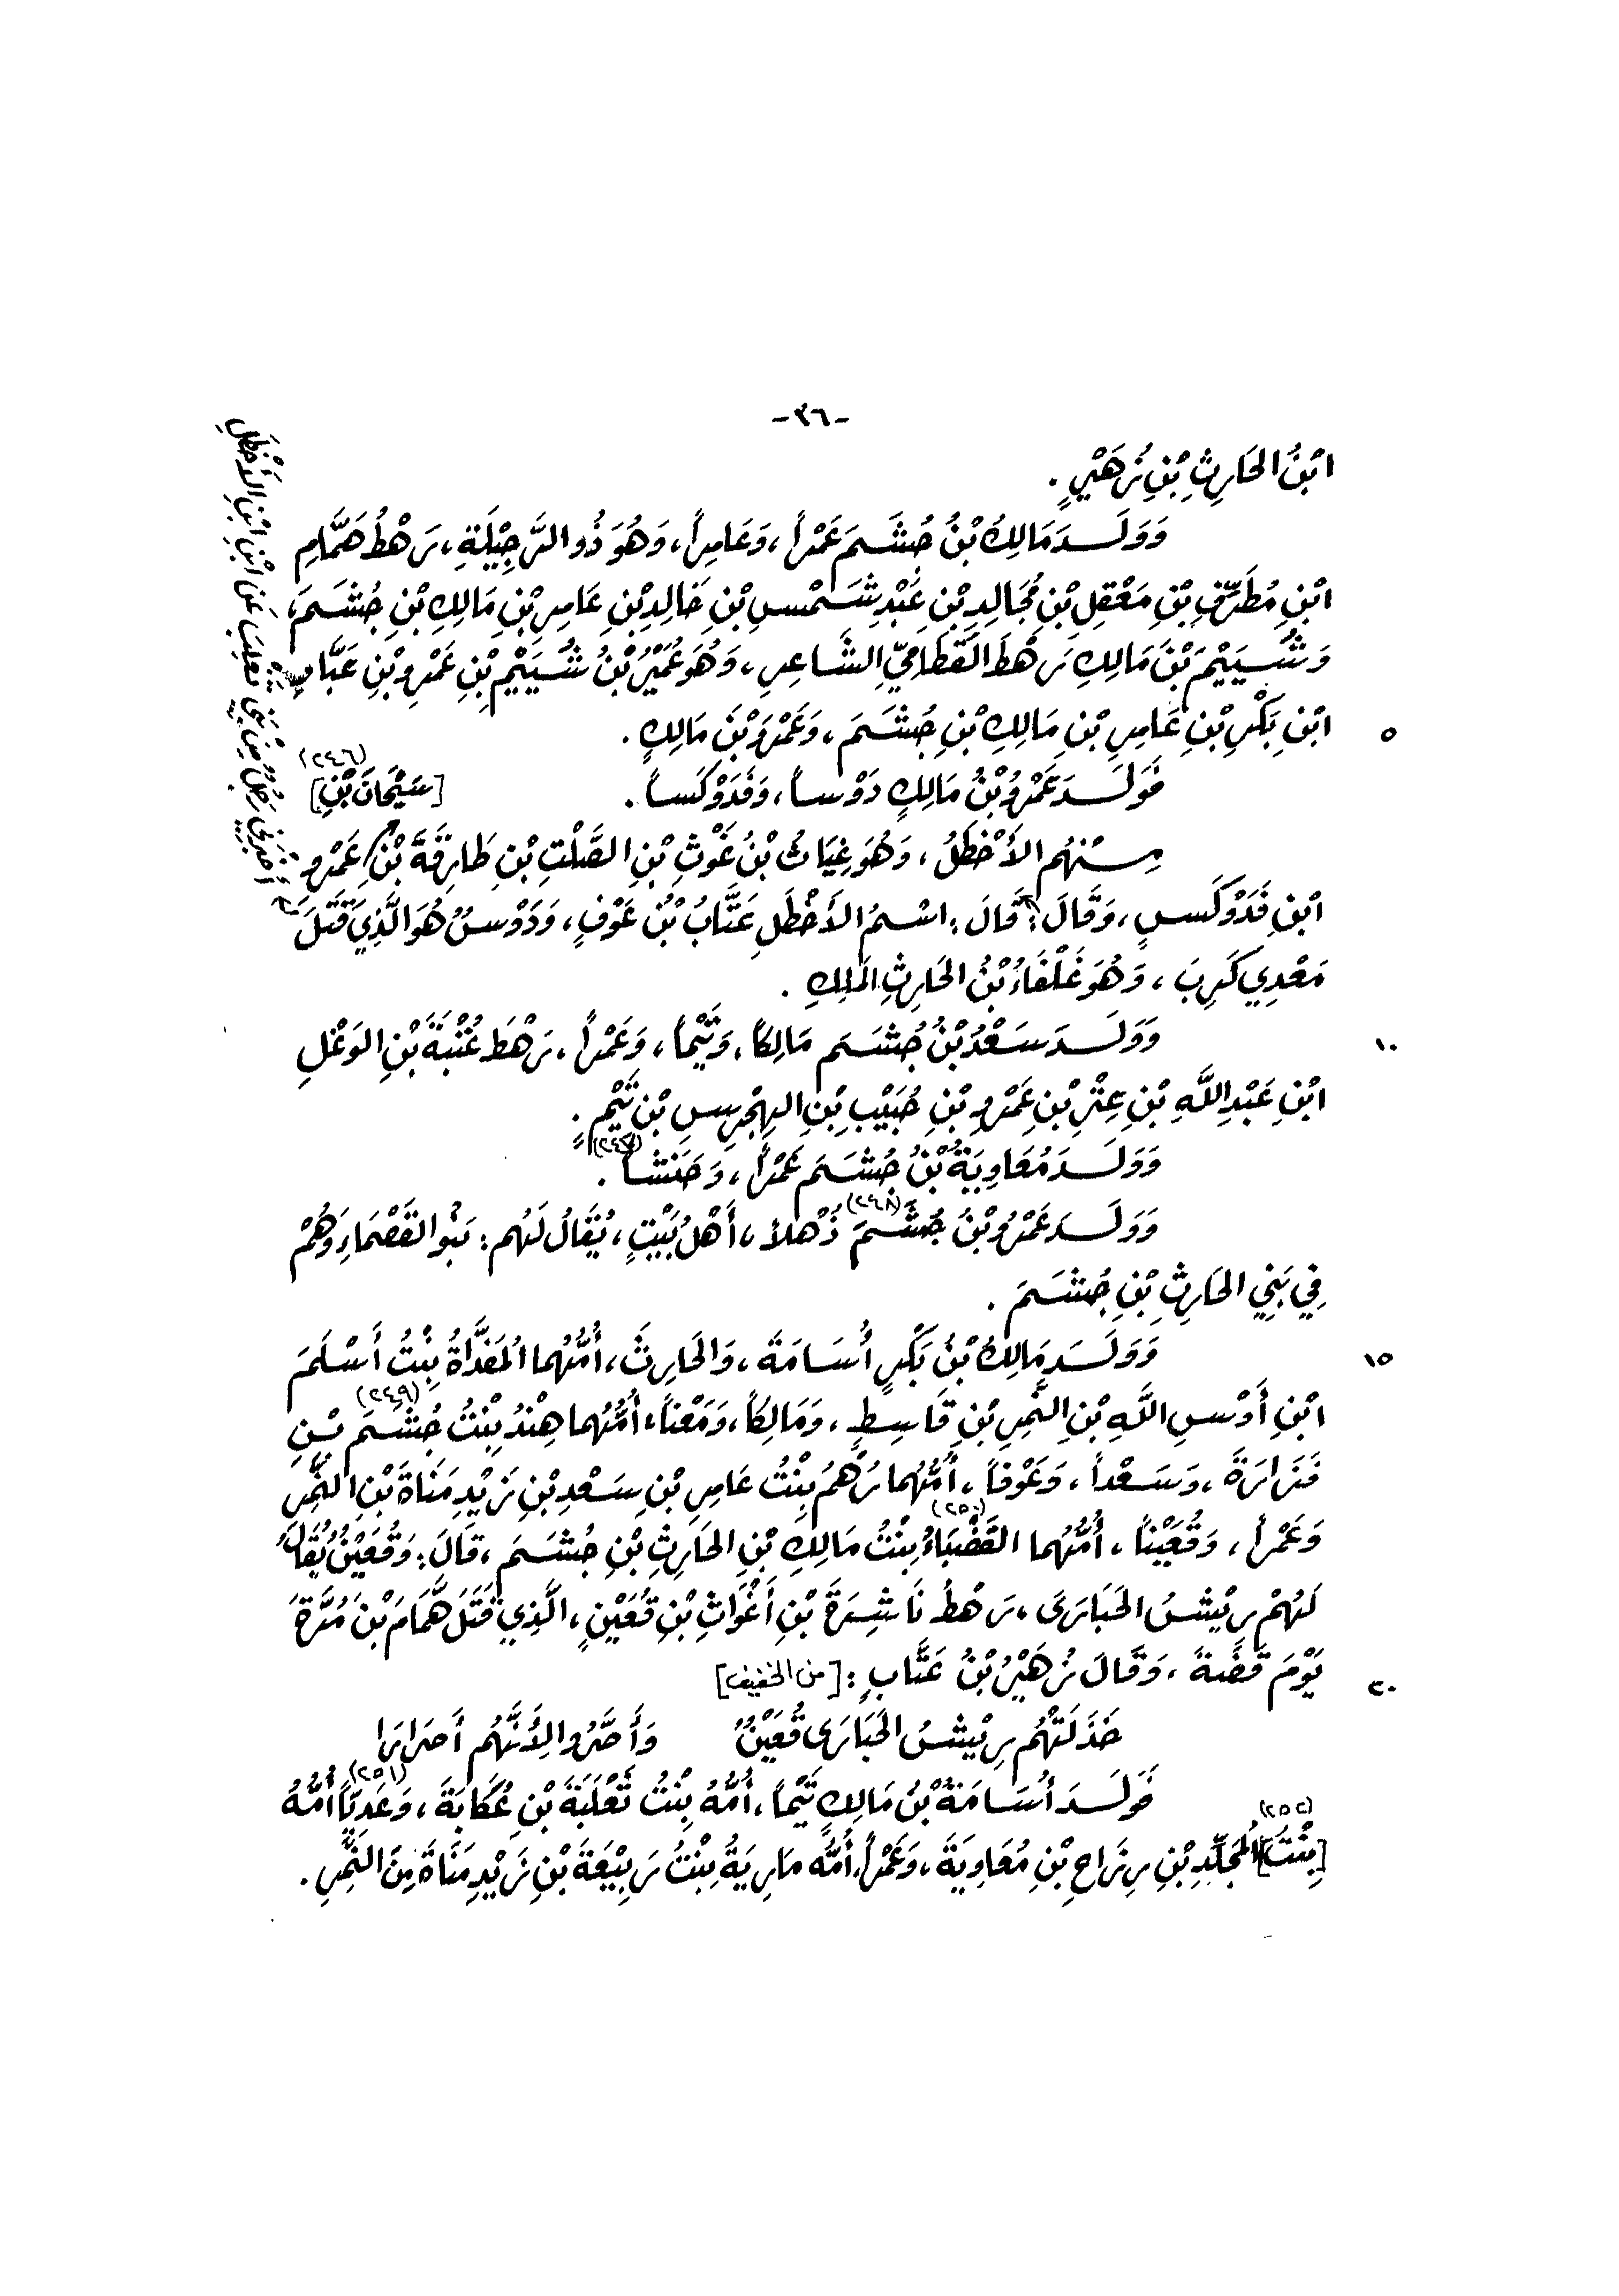 -٣٦-
ابْنُ الحَارِثِ بْنِ زُهَيْرٍ .
وَوَلَدَ مَالِكُ بْنُ جُشَمَ عَمْراً ، وَعَامِراً ، وَهُوَ ذُو الرَّجِيْلَةِ ، رَهْطُ هَمَّامِ
ابْنِ مُطَرِّفِ بْنِ مَعْقِلِ بْنِ مُجَالِدِ بْنِ عَبْدِ شَمْسِ بْنِ خَالِدِ بْنِ عَامِرِ بْنِ مَالِكِ بْنِ جُشَمَ ،
وَشُيَيْمَ بْنَ مَالِكِ رَهْطَ القَطَامِيِّ الشَّاعِرِ ، وَهُوَ عُمَيْرُ بْنُ شُيَيْمِ بْنِ عَمْرِو بْنِ عَبَّادِ
٥ ابْنِ بَكْرِ بْنِ عَامِرِ بْنِ مَالِكِ بْنِ جُشَمَ ، وَعَمْرَو بْنَ مَالِكٍ .
فَوَلَدَ عَمْرُو بْنُ مَالِكٍ دَوْساً ، وَفَدَوْكَساً . [سَيْحَانَ بْنِ] (٢٤٦)
مِنْهُم الأَخْطَلُ ، وَهُوَ غِيَاثُ بْنُ غَوْثِ بْنِ الصَّلْتِ بْنِ طَارِقَةَ بْنِ عَمْرِو
ابْنِ فَدَوْكَسٍ ، وَقَالَ : قَالَ : اسْمُ الأَخْطَلِ عَتَّابُ بْنُ عَوْفٍ ، وَدَوْسٌ هُوَ الَّذِي قَتَلَ
مَعْدِي كَرِبَ ، وَهُوَ غَلْفَاءُ بْنُ الحَارِثِ المَلِكِ .
١٠ وَوَلَدَ سَعْدُ بْنُ جُشَمَ مَالِكاً ، وَتَيْماً ، وَعَمْراً ، رَهْطَ عُتْبَةَ بْنِ الوَغْلِ
ابْنِ عَبْدِ اللَّهِ بْنِ عِتْرِ بْنِ عَمْرِو بْنِ حُبَيْبِ بْنِ الهِجْرِسِ بْنِ تَيْمٍ .
وَوَلَدَ مُعَاوِيَةُ بْنُ جُشَمَ عَمْراً ، وَحَنَشاً (٢٤٧) .
وَوَلَدَ عَمْرُو بْنُ جُشَمَ (٢٤٨) ذُهْلاً ، أَهْلُ بَيْتٍ ، يُقَالُ لَهُم : بَنُو القَصْمَاءِ وَهُمْ
فِي بَنِي الحَارِثِ بْنِ جُشَمَ .
١٥ وَوَلَدَ مَالِكُ بْنُ بَكْرٍ أُسَامَةَ ، وَالحَارِثَ ، أُمُّهُما المُفَدَّاةُ بِنْتُ أَسْلَمَ
ابْنِ أَوْسِ اللَّهِ بْنِ النَّمِرِ بْنِ قَاسِطٍ ، وَمَالِكاً ، وَمَعْناً ، أُمُّهُما هِنْدُ بِنْتُ جُشَمَ (٢٤٩) بْنِ
فَزَارَةَ ، وَسَعْداً ، وَعَوْفاً ، أُمُّهُما رُهْمُ بِنْتُ عَامِرِ بْنِ سَعْدِ بْنِ زَيْدِ مَنَاةَ بْنِ النَّمِرِ
وَعَمْراً ، وَقُعَيْناً ، أُمُّهُما القَضْبَاءُ (٢٥٠) بِنْتُ مَالِكِ بْنِ الحَارِثِ بْنِ جُشَمَ ، قَالَ : وَقُعَيْنٌ يُقَالُ
لَهُمْ رِيْشُ الحَبَارَى ، رَهْطُ نَاشِرَةَ بْنِ أَغْوَاثِ بْنِ قُعَيْنٍ ، الَّذِي قَتَلَ هَمَّامَ بْنَ مُرَّةَ
٢٠ يَوْمَ قِضَّةَ ، وَقَالَ زُهَيْرُ بْنُ عَتَّابٍ : [من الخفيف]
خَذَلَتْهُم رِيْشُ الحَبَارَى قُعَيْنٌ وَأَصَرُّوا لِأَنَّهُم أَصْرَارَا
فَوَلَدَ أُسَامَةُ بْنُ مَالِكٍ تَيْماً ، أُمُّهُ بِنْتُ ثَعْلَبَةَ بْنِ عُكَابَةَ ، وَعَدِيّاً (٢٥١) أُمُّهُ
[بِنْتُ] (٢٥٢) المُجَلِّدِ بْنِ رِزَاحِ بْنِ مُعَاوِيَةَ ، وَعَمْراً ، أُمُّهُ مَارِيَةُ بِنْتُ رَبِيْعَةَ بْنِ زَيْدِ مَنَاةَ مِنَ النَّمِرِ .
أَخْبَرَنِي رَجُلٌ مِنْ بَنِي تَغْلِبَ عَنِ ابْنِ ابْنِ الأَخْطَلِ